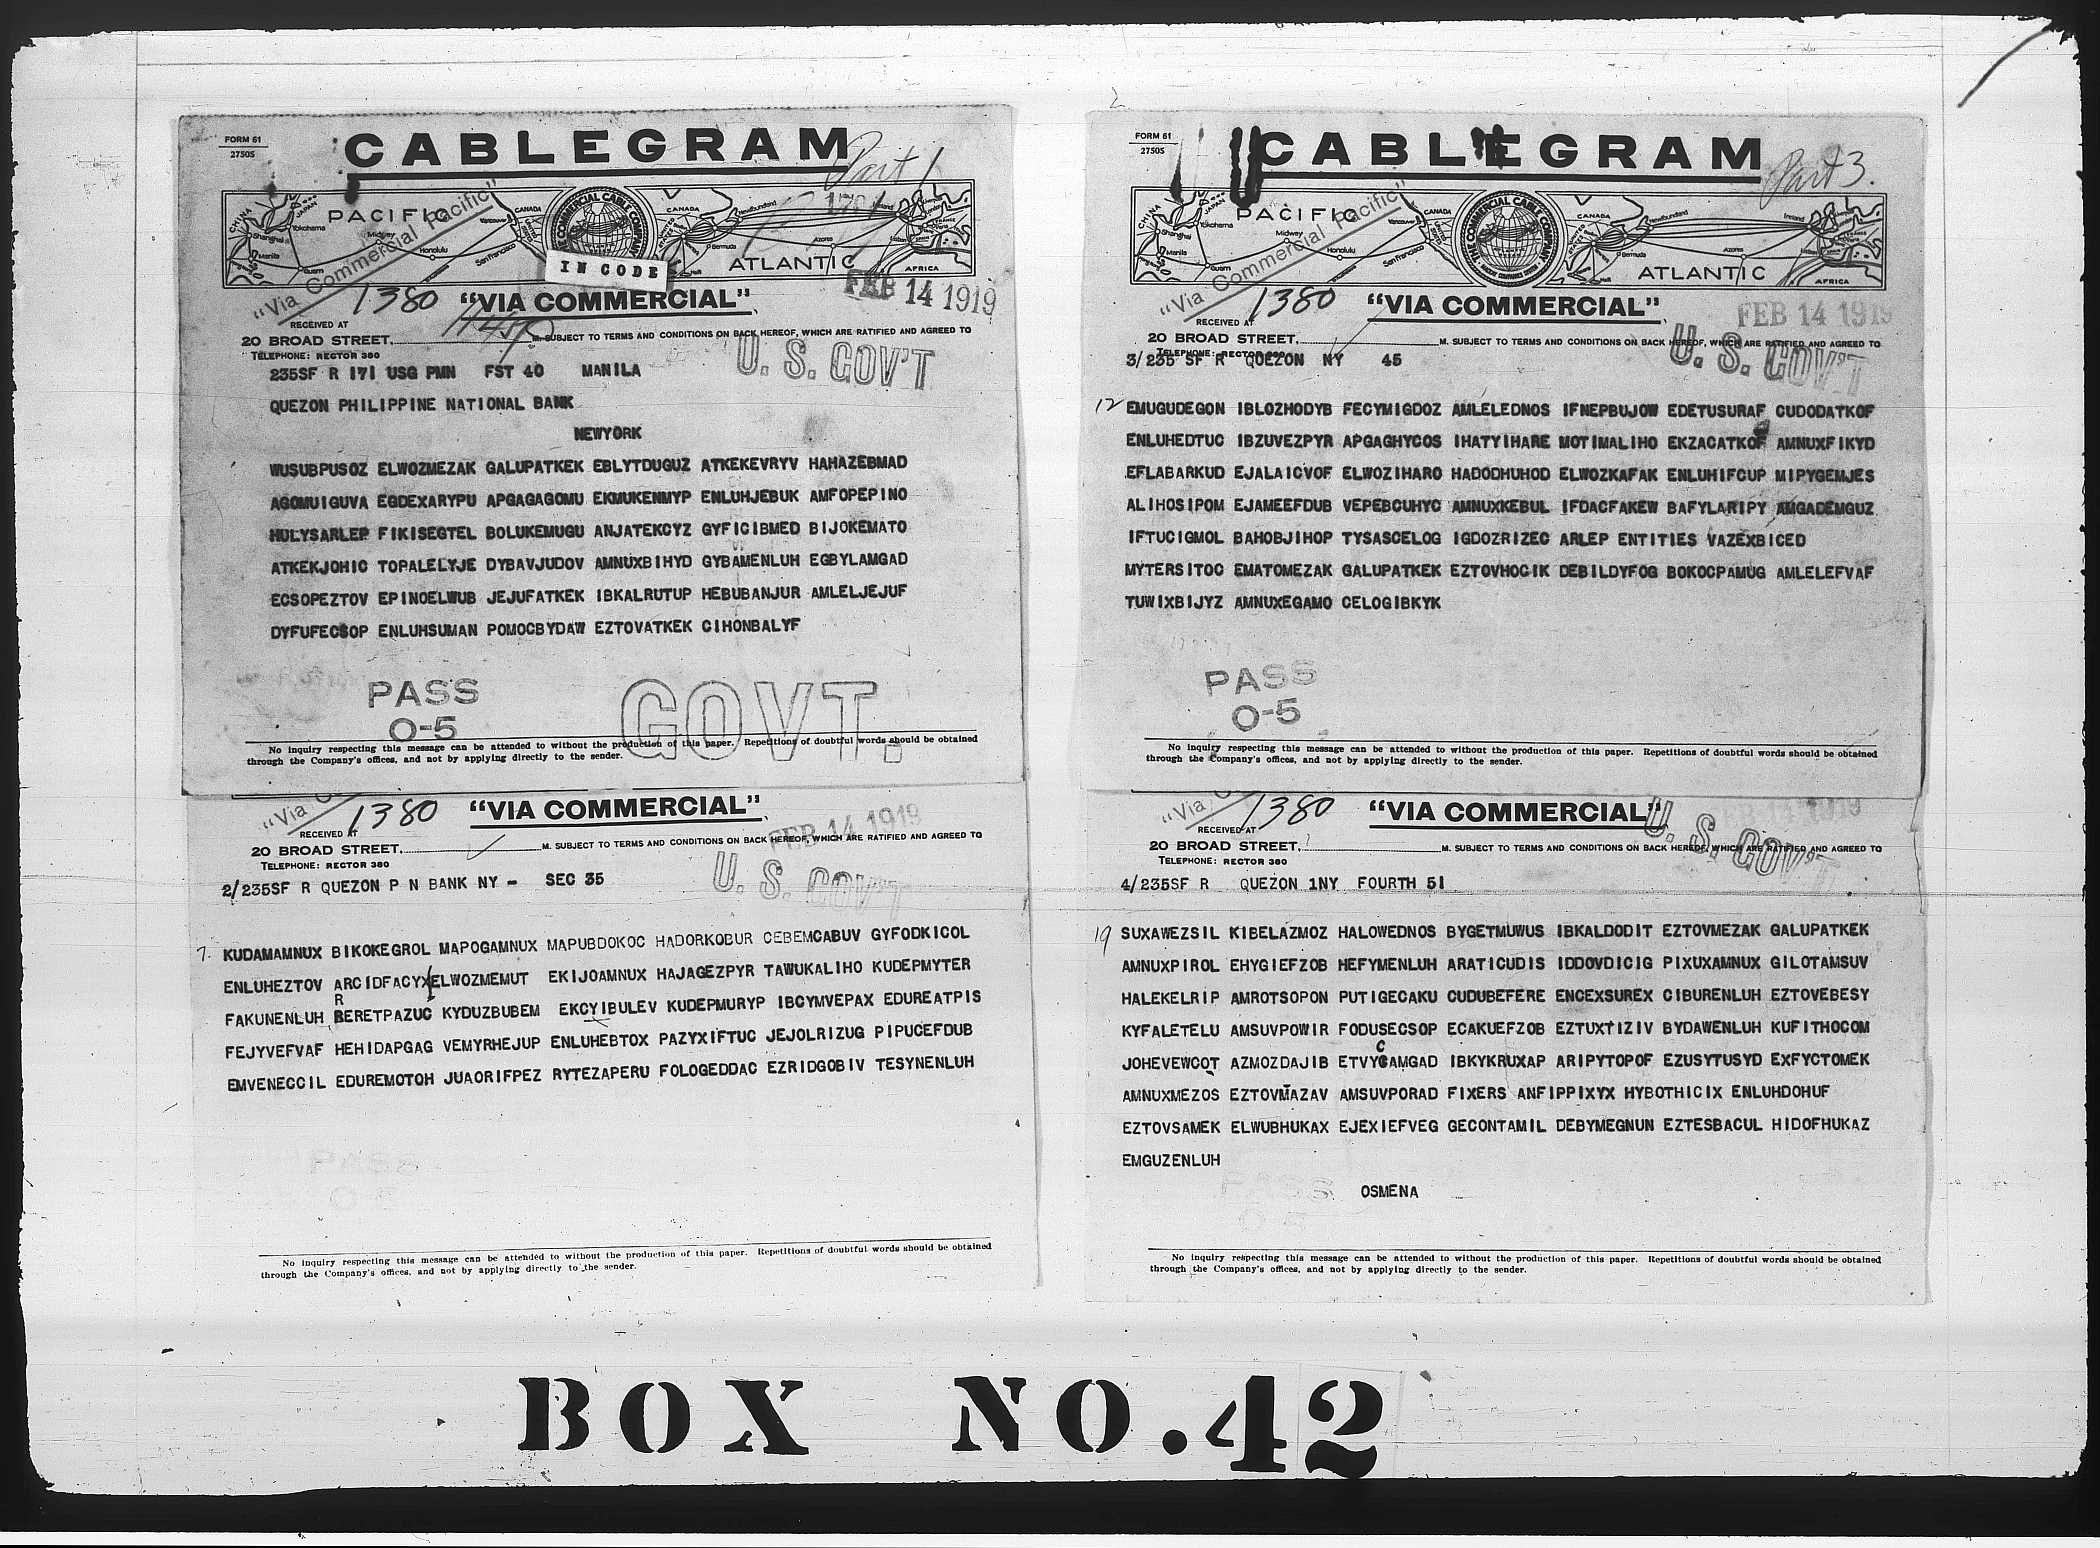 FORM 61
27505
CABLEGRAM
Part 1
PACIFIC
ATLANTIC
AFRICA
THE COMMERCIAL CABLE COMPANY
"Via Commercial Pacific"
IN CODE
1380 "VIA COMMERCIAL"
FEB 14 1919
RECEIVED AT
20 BROAD STREET, M. SUBJECT TO TERMS AND CONDITIONS ON BACK HEREOF, WHICH ARE RATIFIED AND AGREED TO
TELEPHONE: RECTOR 380
U. S. GOV'T
235SF R 171 USG PMN FST 40 MANILA
QUEZON PHILIPPINE NATIONAL BANK
NEWYORK
WUSUBPUSOZ ELWOZMEZAK GALUPATKEK EBLYTDUGUZ ATKEKEVRYV HAHAZEBMAD
AGOMUIGUVA EGDEXARYPU APGAGAGOMU EKMUKENMYP ENLUHJEBUK AMFOPEPINO
HULYSARLEP FIKISEGTEL BOLUKEMUGU ANJATEKCYZ GYFICIBMED BIJOKEMATO
ATKEKJOHIC TOPALELYJE DYBAVJUDOV AMNUXBIHYD GYBAMENLUH EGBYLAMGAD
ECSOPEZTOV EPINOELWUB JEJUFATKEK IBKALRUTUP HEBUBANJUR AMLELJEJUF
DYFUFECSOP ENLUHSUMAN POMOCBYDAW EZTOVATKEK CIHONBALYF
PASS
0-5
GOVT.
No inquiry respecting this message can be attended to without the production of this paper. Repetitions of doubtful words should be obtained
through the Company's offices, and not by applying directly to the sender.
"Via
1380 "VIA COMMERCIAL"
FEB 14 1919
RECEIVED AT
20 BROAD STREET, M. SUBJECT TO TERMS AND CONDITIONS ON BACK HEREOF, WHICH ARE RATIFIED AND AGREED TO
TELEPHONE: RECTOR 380
U. S. GOV'T
2/235SF R QUEZON P N BANK NY - SEC 35
7. KUDAMAMNUX BIKOKEGROL MAPOGAMNUX MAPUBDOKOC HADORKOBUR CEBEMCABUV GYFODKICOL
ENLUHEZTOV ARCIDFACYX/ELWOZMEMUT EKIJOAMNUX HAJAGEZPYR TAWUKALIHO KUDEPMYTER
R
FAKUNENLUH BERETPAZUC KYDUZBUBEM EKCYIBULEV KUDEPMURYP IBCYMVEPAX EDUREATPIS
FEJYVEFVAF HEHIDAPGAG VEMYRHEJUP ENLUHEBTOX PAZYXIFTUC JEJOLRIZUG PIPUCEFDUB
EMVENECCIL EDUREMOTOH JUAORIFPEZ RYTEZAPERU FOLOGEDDAC EZRIDGOBIV TESYNENLUH
No inquiry respecting this message can be attended to without the production of this paper. Repetitions of doubtful words should be obtained
through the Company's offices, and not by applying directly to the sender.
2
FORM 61
27505
CABLEGRAM
Part 3.
PACIFIC
ATLANTIC
AFRICA
THE COMMERCIAL CABLE COMPANY
"Via Commercial Pacific"
1380 "VIA COMMERCIAL"
FEB 14 1919
RECEIVED AT
20 BROAD STREET, M. SUBJECT TO TERMS AND CONDITIONS ON BACK HEREOF, WHICH ARE RATIFIED AND AGREED TO
TELEPHONE: RECTOR 380
U. S. GOV'T
3/235 SF R QUEZON NY 45
12 EMUGUDEGON IBLOZHODYB FECYMIGDOZ AMLELEDNOS IFNEPBUJOW EDETUSURAF CUDODATKOF
ENLUHEDTUC IBZUVEZPYR APGAGHYCOS IHATYIHARE MOTIMALIHO EKZACATKOF AMNUXFIKYD
EFLABARKUD EJALAICVOF ELWOZIHARO HADODHUHOD ELWOZKAFAK ENLUHIFCUP MIPYGEMJES
ALIHOSIPOM EJAMEEFDUB VEPEBCUHYC AMNUXKEBUL IFDACFAKEW BAFYLARIPY AMGADEMGUZ
IFTUCIGMOL BAHOBJIHOP TYSASCELOG IGDOZRIZEC ARLEP ENTITIES VAZEXBICED
MYTERSITOC EMATOMEZAK GALUPATKEK EZTOVHOCIK DEBILDYFOG BOKOCPAMUG AMLELEFVAF
TUWIXBIJYZ AMNUXEGAMO CELOGIBKYK
PASS
0-5
No inquiry respecting this message can be attended to without the production of this paper. Repetitions of doubtful words should be obtained
through the Company's offices, and not by applying directly to the sender.
"Via
1380 "VIA COMMERCIAL"
RECEIVED AT
20 BROAD STREET, M. SUBJECT TO TERMS AND CONDITIONS ON BACK HEREOF, WHICH ARE RATIFIED AND AGREED TO
TELEPHONE: RECTOR 380
U. S. GOV'T
4/235SF R QUEZON 1NY FOURTH 51
19 SUXAWEZSIL KIBELAZMOZ HALOWEDNOS BYGETMUWUS IBKALDODIT EZTOVMEZAK GALUPATKEK
AMNUXPIROL EHYGIEFZOB HEFYMENLUH ARATICUDIS IDDOVDICIG PIXUXAMNUX GILOTAMSUV
HALEKELRIP AMROTSOPON PUTIGECAKU CUDUBEFERE ENCEXSUREX CIBURENLUH EZTOVEBESY
KYFALETELU AMSUVPOWIR FODUSECSOP ECAKUEFZOB EZTUXTIZIV BYDAWENLUH KUFITHOCOM
C
JOHEVEWCOT AZMOZDAJIB ETVYGAMGAD IBKYKRUXAP ARIPYTOPOF EZUSYTUSYD EXFYCTOMEK
AMNUXMEZOS EZTOVMAZAV AMSUVPORAD FIXERS ANFIPPIXYX HYBOTHICIX ENLUHDOHUF
EZTOVSAMEK ELWUBHUKAX EJEXIEFVEG GECONTAMIL DEBYMEGNUN EZTESBACUL HIDOFHUKAZ
EMGUZENLUH
OSMENA
No inquiry respecting this message can be attended to without the production of this paper. Repetitions of doubtful words should be obtained
through the Company's offices, and not by applying directly to the sender.
BOX NO.42